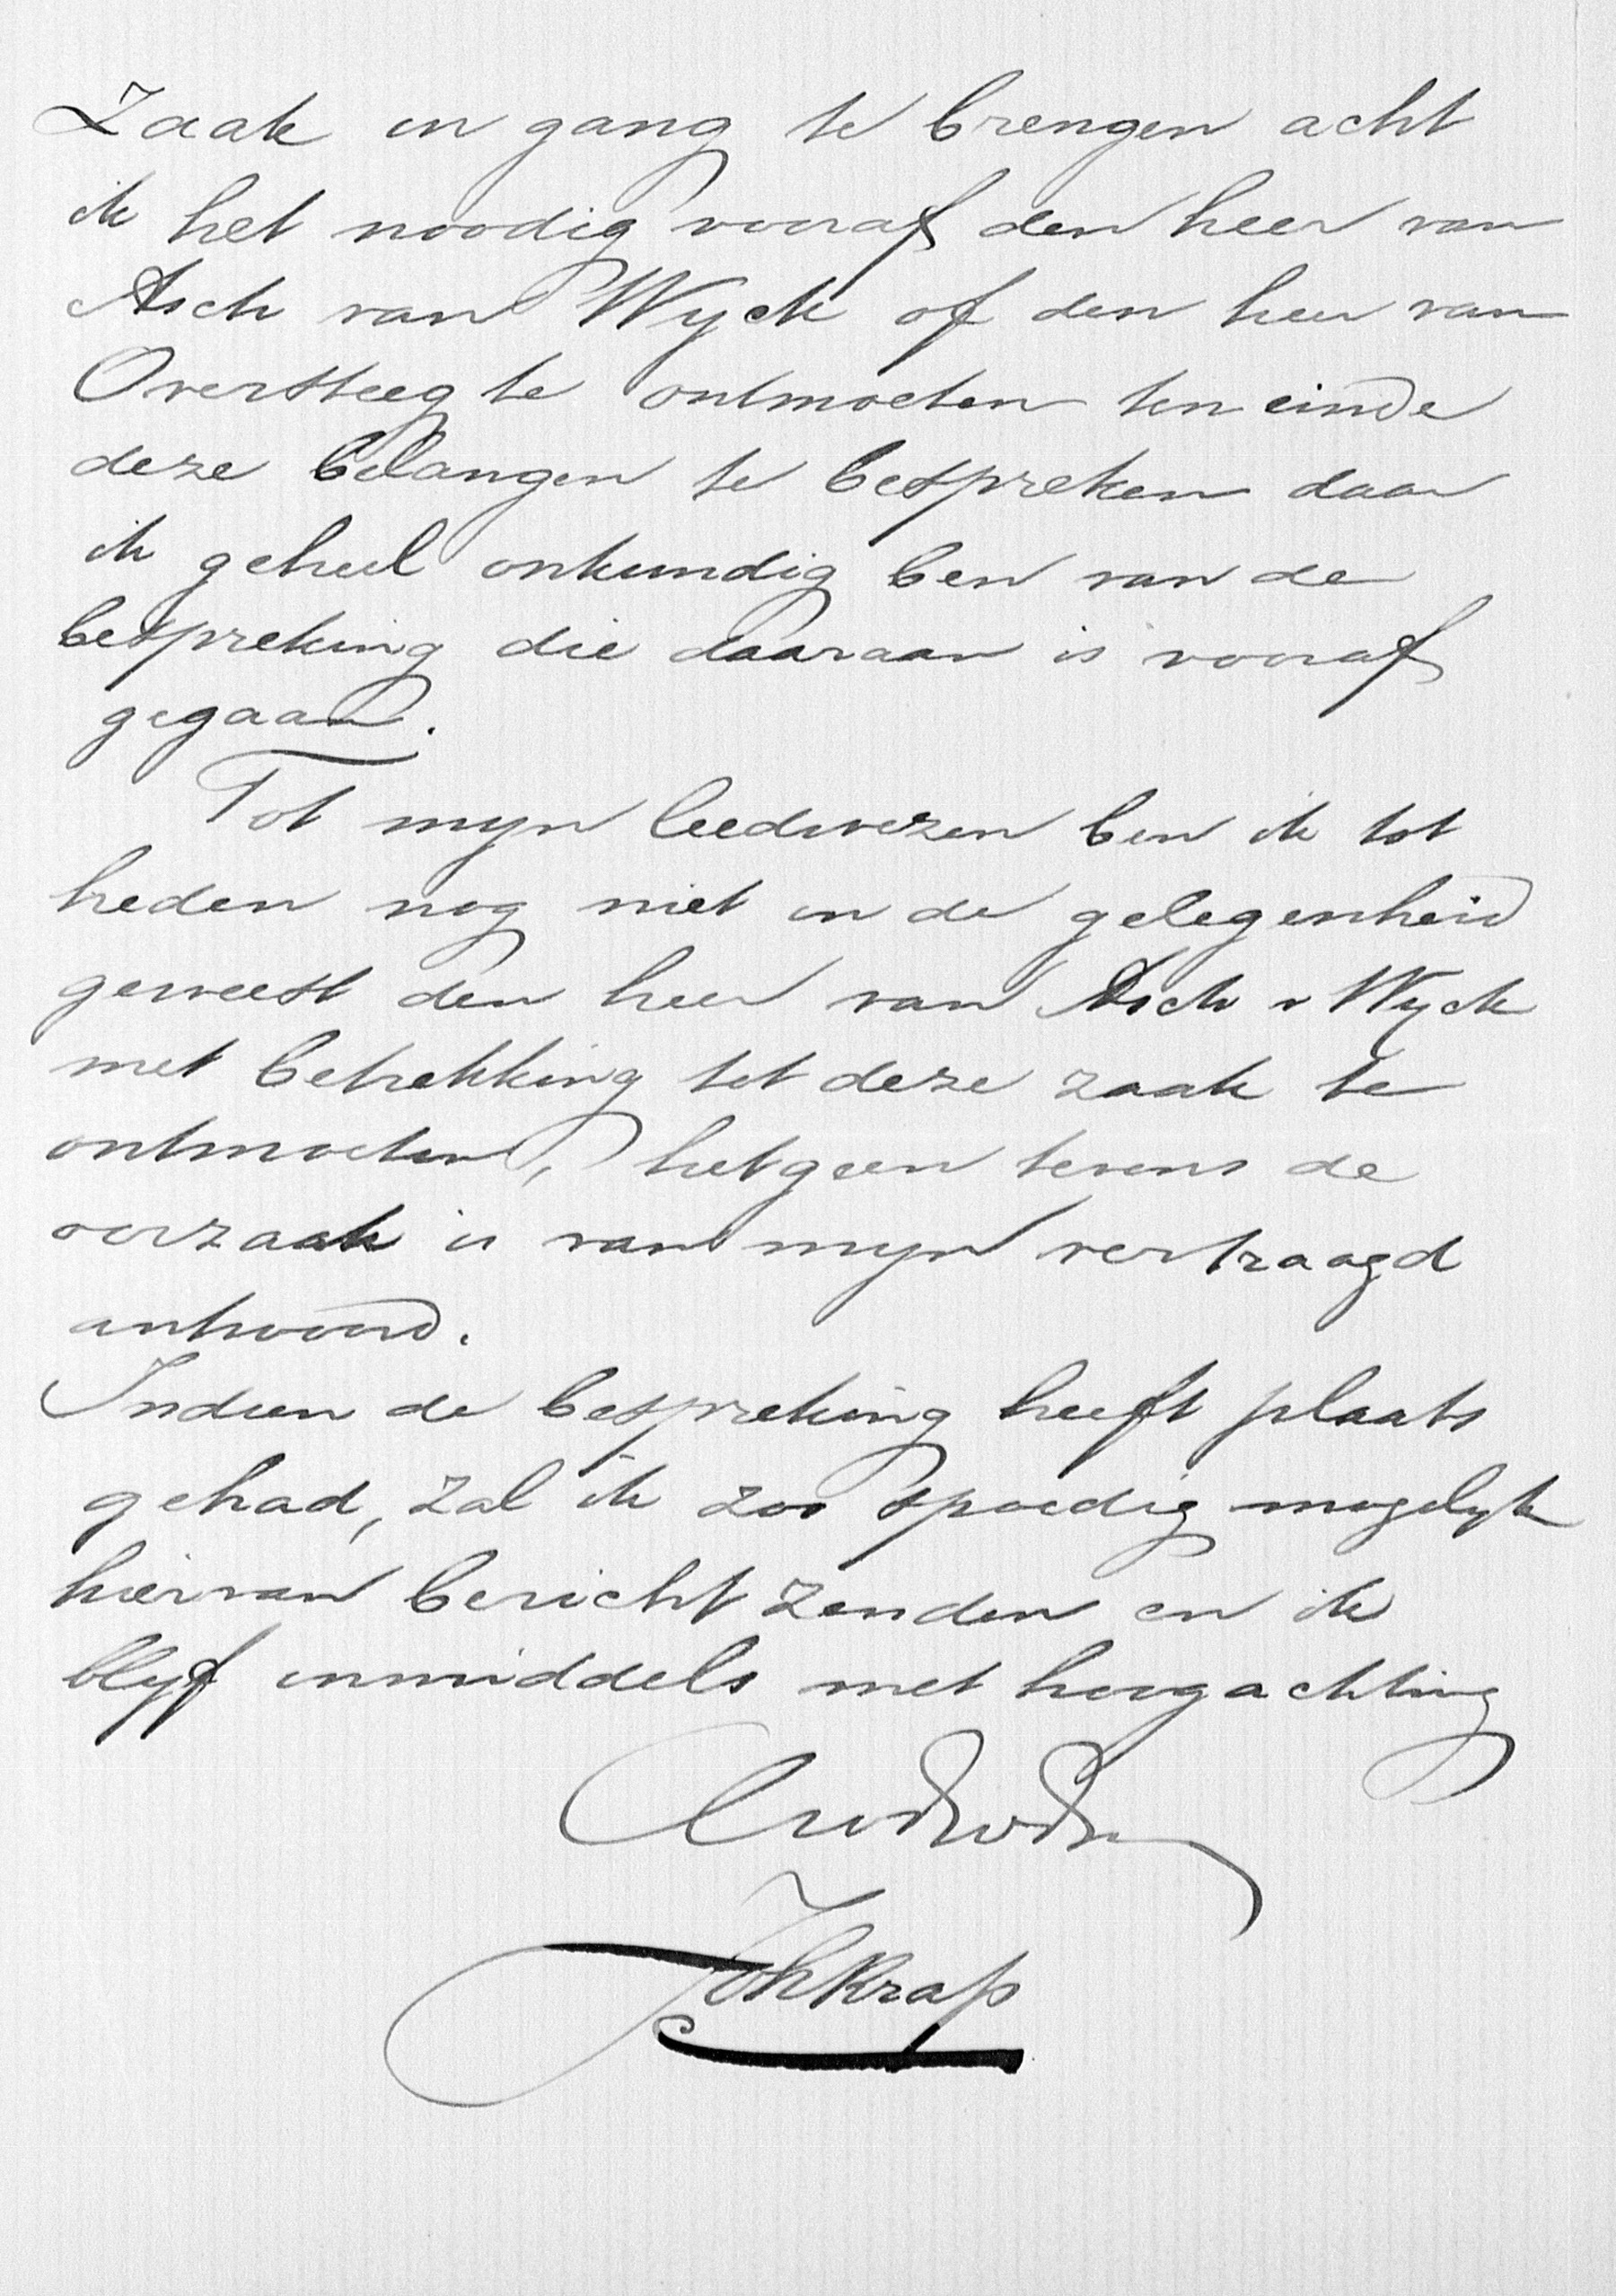 Zaak in gang te brengen acht
ik het noodig vooraf den heer van
Asch van Wyck of den heer van
Oversteeg te ontmoeten ten einde
deze belangen te bespreken daar
ik geheel onkundig ben van de
bespreking die daaraan is vooraf
gegaan.
Tot myn leedwezen ben ik tot
heden nog niet in de gelegenheid
geweest den heer van Asch v Wyck
met betrekking tot deze zaak te
ontmoeten, hetgeen tevens de
oorzaak is van myn vertraagd
antwoord.
Indien de bespreking heeft plaats
gehad, zal ik zoo spoedig mogelyk
hiervan bericht zenden en ik
blyf inmiddels met hoogachting
JohKrap